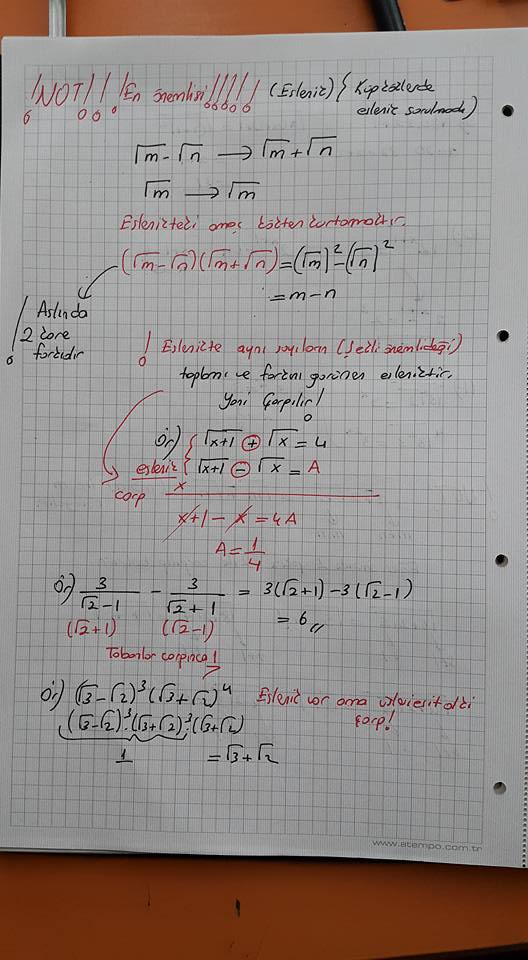 !NOT!!! En önemlisi!!!!! (Eşlenik) { Küpköklerde
eşlenik sorulmadı)
√m-√n → √m+√n
√m → √m
Eşlenikteki amaç kökten kurtarmaktır.
(√m-√n)(√m+√n)=(√m)²-(√n)²
=m-n
Aslında
2 kare
farkıdır
! Eşlenikte aynı sayıların (Şekli önemli değil)
toplamı ve farkını görünen eşleniktir.
Yani Çarpılır!
Ör) √x+1 + √x = 4
eşlenik √x+1 - √x = A
çarp x
x+1-x = 4A
A=1/4
Ör) 3/(√2-1) - 3/(√2+1) = 3(√2+1)-3(√2-1)
(√2+1) (√2-1) = 6//
Tabanlar çarpınca 1
Ör) (√3-√2)³(√3+√2)⁴ Eşlenik var ama üsleri eşit olanı
(√3-√2)³.(√3+√2)³.(√3+√2) çarp!
1 =√3+√2
www.atempo.com.tr